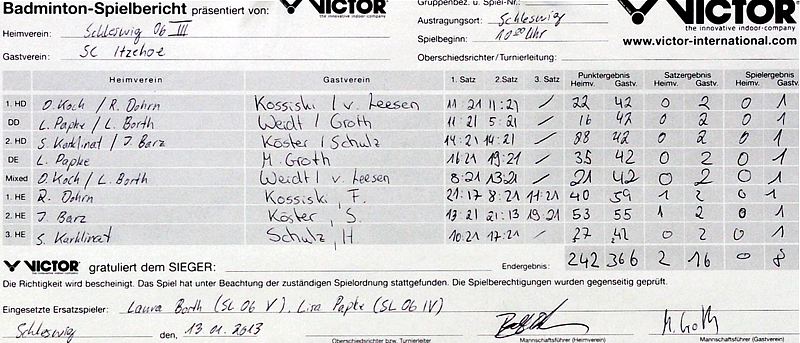 Badminton-Spielbericht präsentiert von: VICTOR the innovative indoor-company
Gruppenbez. u. Spiel-Nr.:
VICTOR the innovative indoor-company
Heimverein: Schleswig 06 III
Austragungsort: Schleswig
Gastverein: SC Itzehoe
Spielbeginn: 10 00 Uhr
www.victor-international.com
Oberschiedsrichter/Turnierleitung:
Heimverein Gastverein 1. Satz 2. Satz 3. Satz Punktergebn. Satzergebn. Spielergebn.
Heimv. Gastv. Heimv. Gastv. Heimv. Gastv.
1. HD O. Koch / R. Dohrn Kossiski / v. Leesen 11:21 11:21 / 22 42 0 2 0 1
DD L. Papke / L. Borth Weidt / Groth 11:21 5:21 / 16 42 0 2 0 1
2. HD S. Karklinat / J. Barz Köster / Schulz 14:21 14:21 / 88 42 0 2 0 1
DE L. Papke M. Groth 16:21 19:21 / 35 42 0 2 0 1
Mixed O. Koch / L. Borth Weidt / v. Leesen 8:21 13:21 / 21 42 0 2 0 1
1. HE R. Dohrn Kossiski, F. 21:17 8:21 11:21 40 59 1 2 0 1
2. HE J. Barz Köster, S. 13:21 21:13 19:21 53 55 1 2 0 1
3. HE S. Karklinat Schulz, H 10:21 17:21 / 27 42 0 2 0 1
VICTOR gratuliert dem SIEGER: Endergebnis: 242 366 2 16 0 8
Die Richtigkeit wird bescheinigt. Das Spiel hat unter Beachtung der zuständigen Spielordnung stattgefunden. Die Spielberechtigungen wurden gegenseitig geprüft.
Eingesetzte Ersatzspieler: Laura Borth (SL 06 V), Lisa Papke (SL 06 IV)
Schleswig den, 13.01.2013 M. Groth
Oberschiedsrichter bzw. Turnierleiter Mannschaftsführer (Heimverein) Mannschaftsführer (Gastverein)